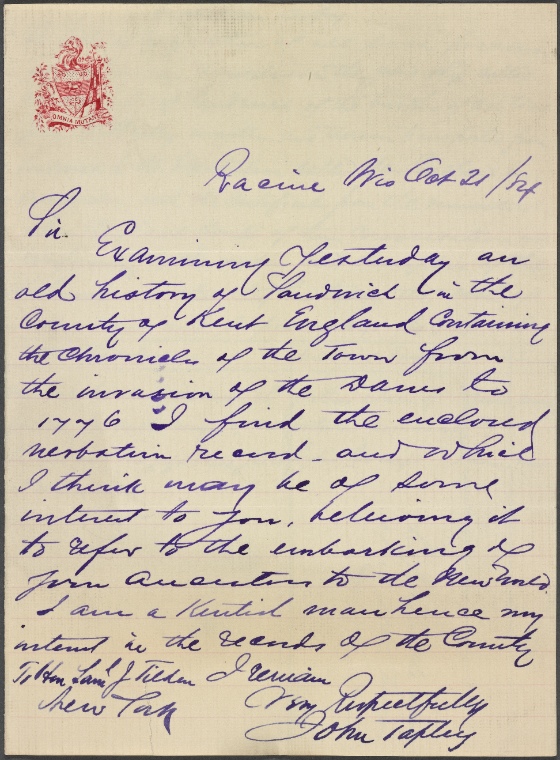 OMNIA MUTANT
Racine Wis Oct 21/84
Sir.
Examining Yesterday an
old history of Sandwich in the
County of Kent England Containing
the Chronicles of the Town from
the invasion of the Danes to
1776 I find the enclosed
verbatim record - and which
I think may be of some
interest to you, believing it
to refer to the embarking of
your Ancestors to the New World
I am a Kentish man hence my
interest in the records of the County
To Hon Saml J Tilden I remain
New York Very Respectfully
John Tapley